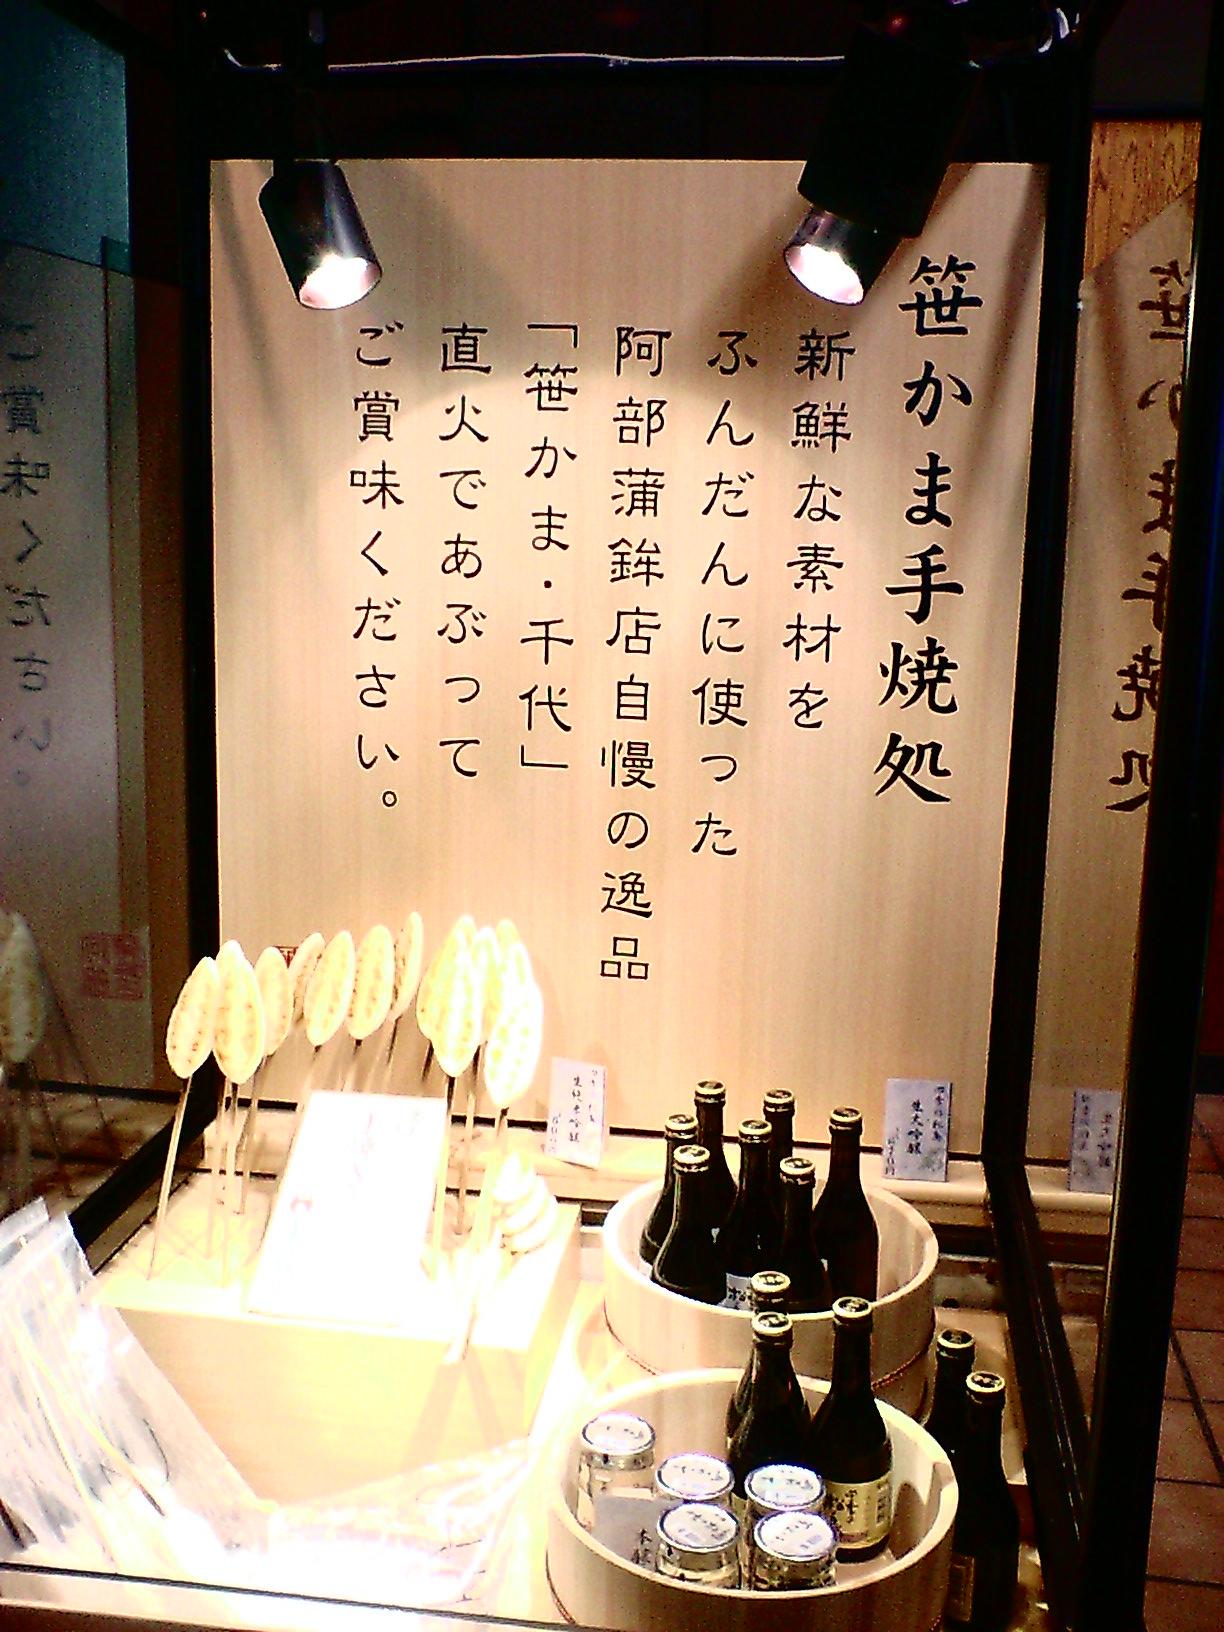 笹かま手焼処
新鮮な素材を
ふんだんに使った
阿部蒲鉾店自慢の逸品
「笹かま・千代」
直火であぶって
ご賞味ください。
生大吟醸
生純米吟醸